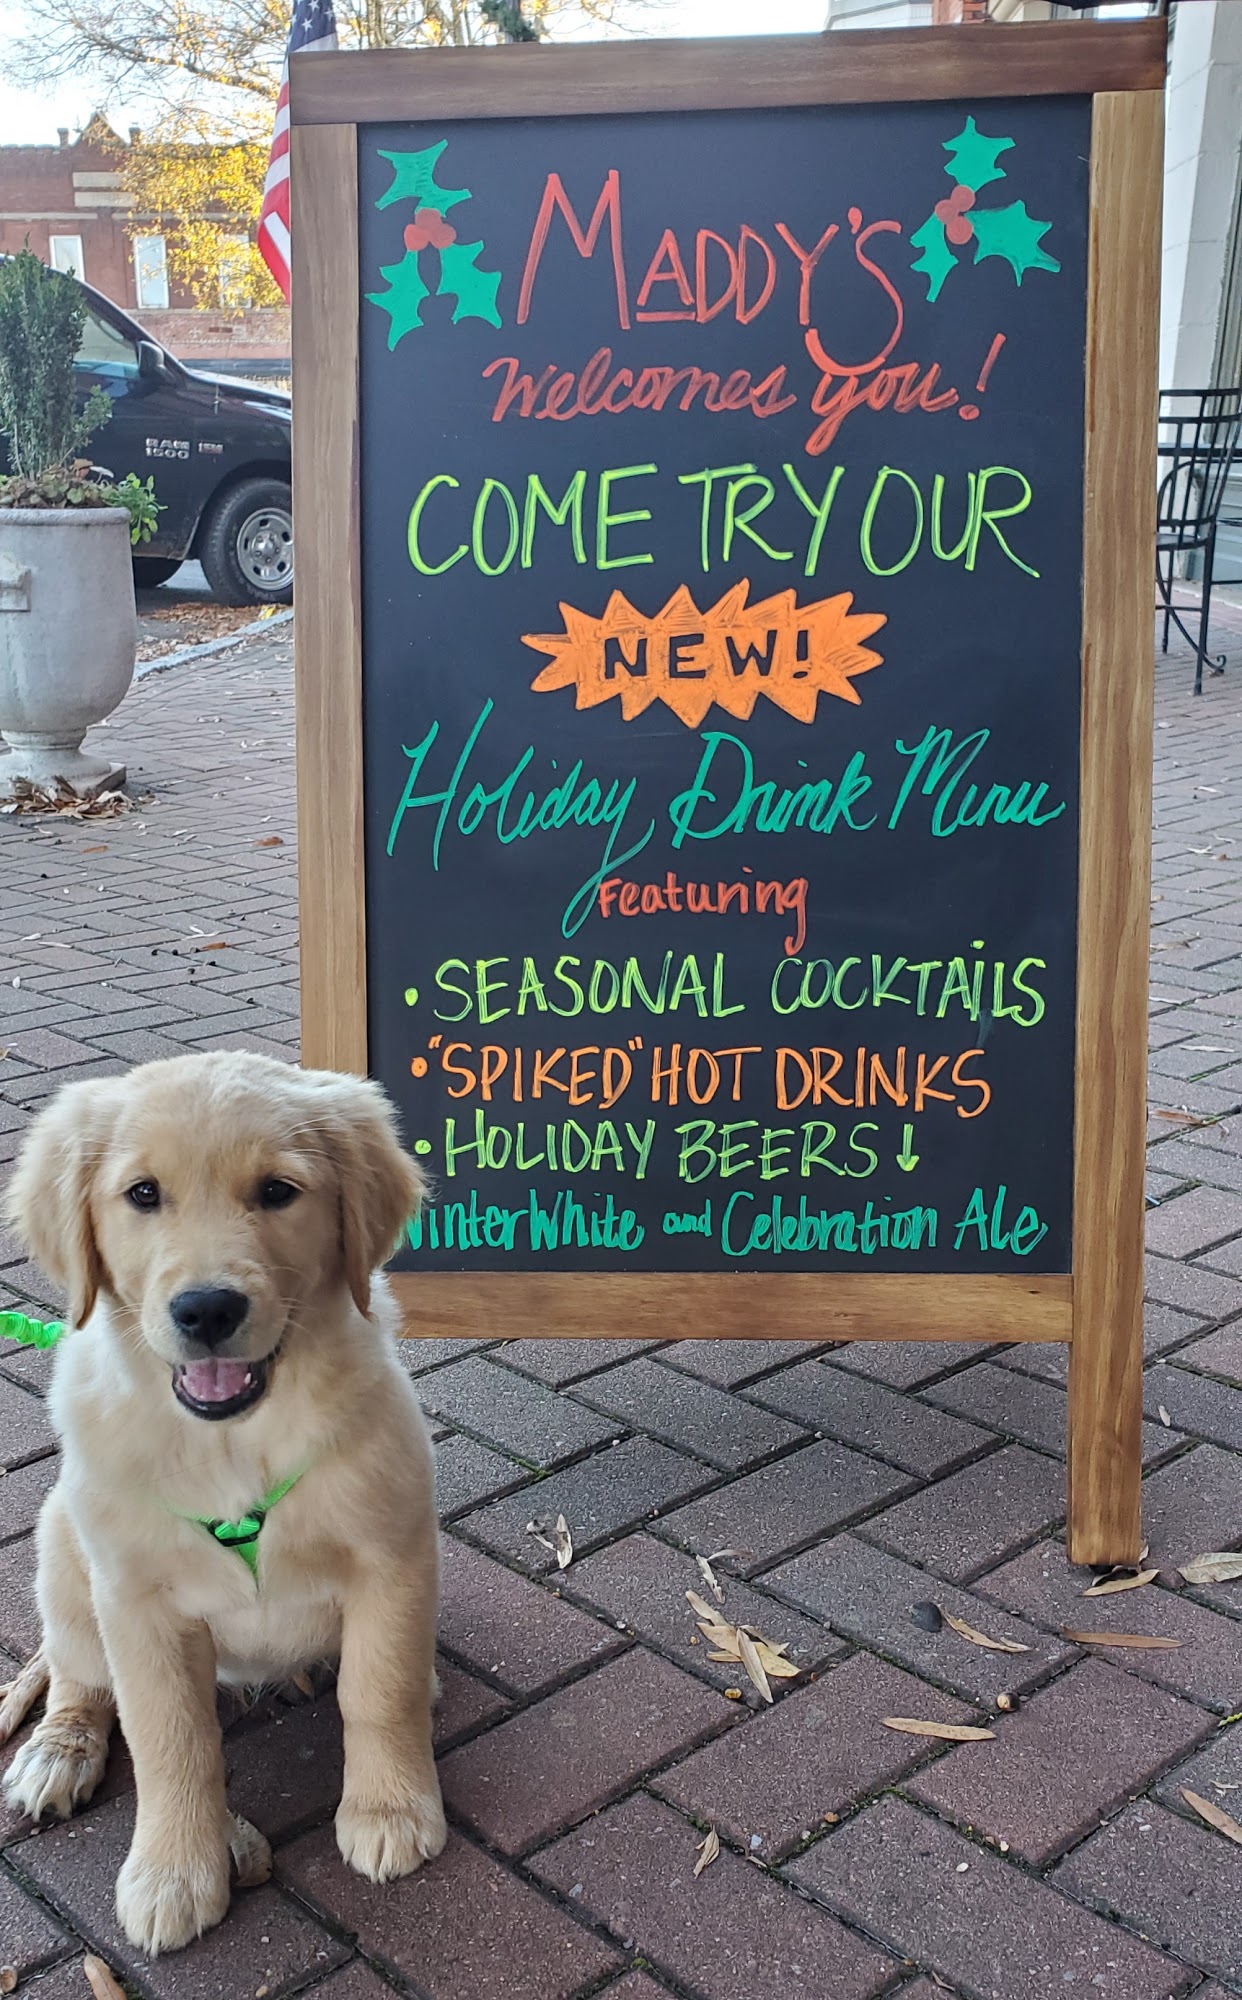 MADDY'S
Welcomes you!
COME TRY OUR
NEW!
Holiday Drink Menu
Featuring
• SEASONAL COCKTAILS
• "SPIKED" HOT DRINKS
• HOLIDAY BEERS ↓
Winter White and Celebration Ale
RAM
1500